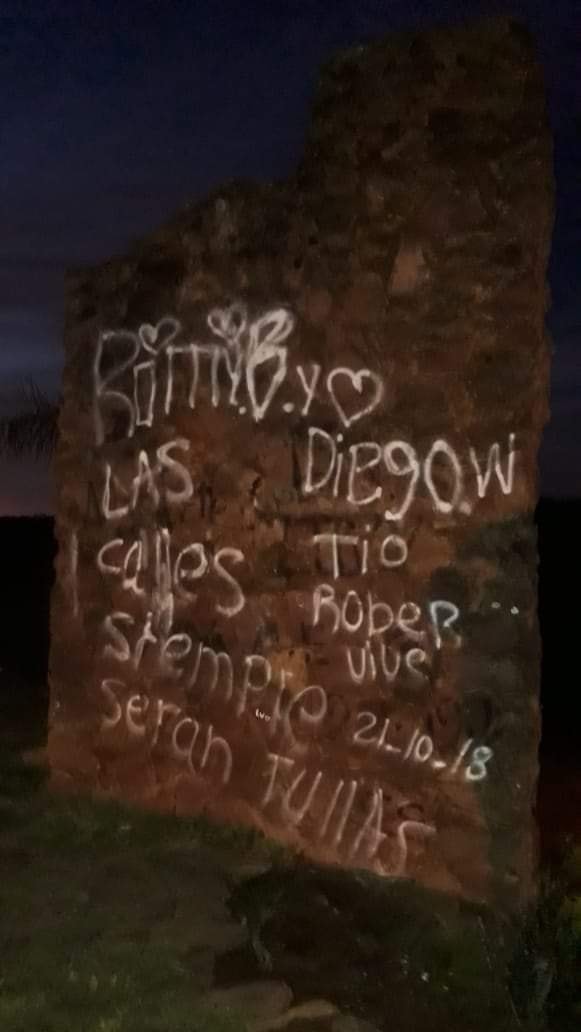 Romy.B.y
Diego.W
LAS
calles
siempre
seran TUllAS
Tio
Rober
vive
21-10-18